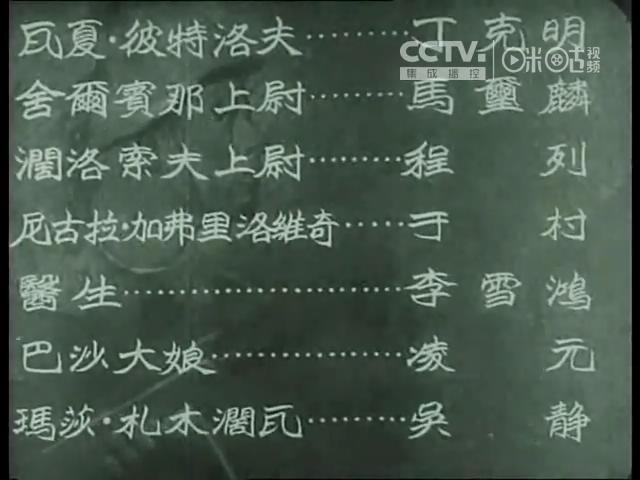 瓦夏·彼特洛夫………丁克明
CCTV. 咪咕视频
集成播控
舍爾賓那上尉………馬璽麟
潤洛索夫上尉………程列
尼古拉·加弗里洛維奇……于村
醫生………………………李雪鴻
巴沙大娘………………凌元
瑪莎·札木潤瓦………吳静